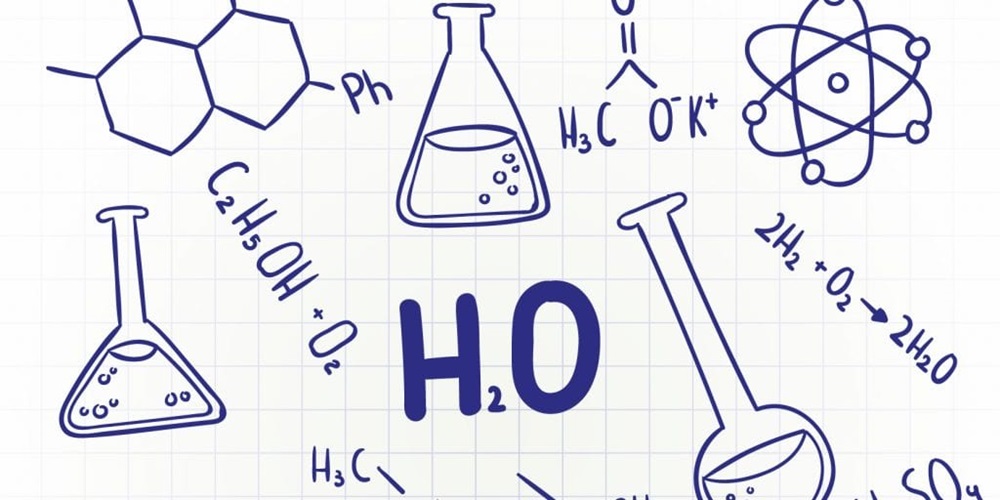 O
Ph
H₃C O⁻K⁺
C₂H₅OH + O₂
2H₂ + O₂ → 2H₂O
H₂O
H₃C
SO₄